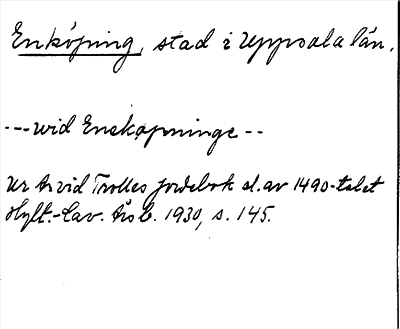 Enköping, stad i Uppsala län.
--- wid Enskøpninge --
Ur Arvid Trolles jordebok sl. av 1490-talet
Hylt.-Cav. Årsb. 1930, s. 145.